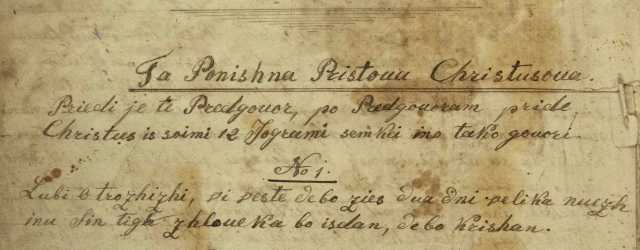 Ta Ponishna Pristouu Christusoua.
Priedi je te Predgouor, po Predgouorum pride
Christus is soimi 12 Jogrami semkei ino tako gouori.
No 1.
Lubi Otrozhizhi, vi veste debo zies dua dni velika nuezh
inu Sin tiga zhloueka bo isdan, debo Krishan.